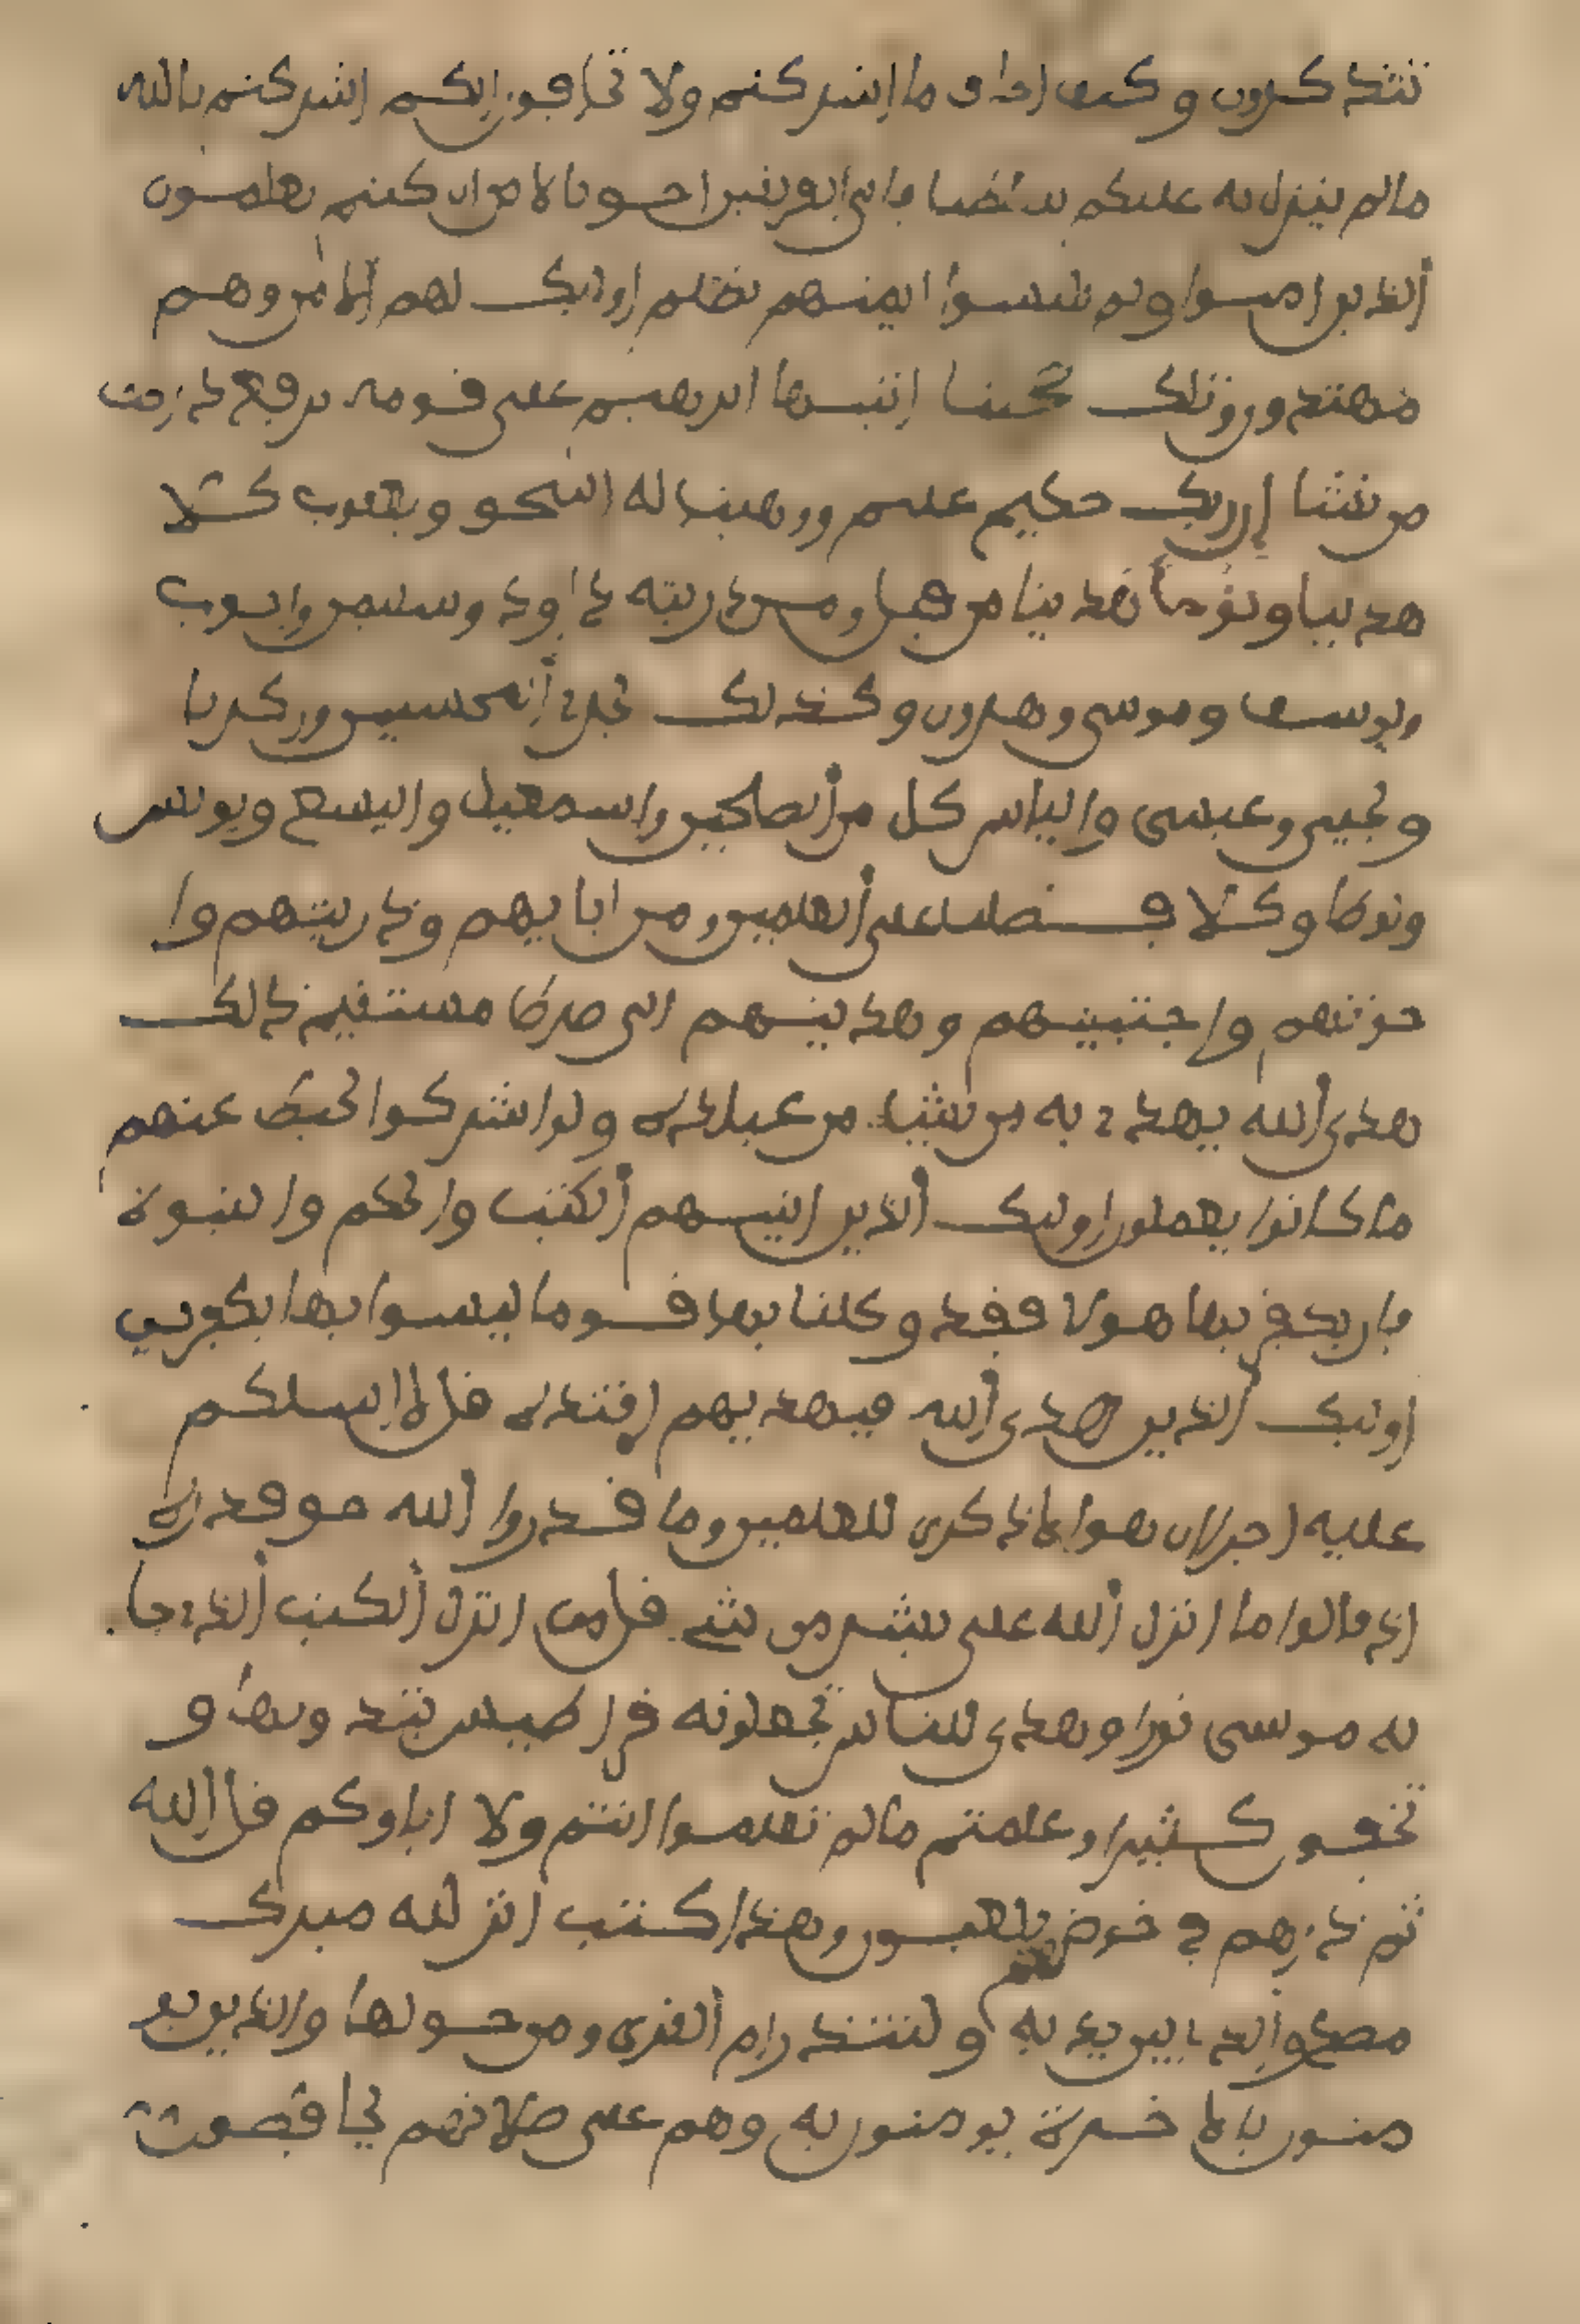 تتذكرون وكيف اخاف ما اشركتم ولا تخافون انكم اشركتم بالله
مالم ينزل به عليكم سلطنا فاى الفريقين احق بالامن ان كنتم تعلمون
الذين امنوا ولم يلبسوا ايمنهم بظلم اوليك لهم الامن وهم
مهتدون وتلك حجتنا اتينها ابرهيم على قومه نرفع درجت
من نشا ان ربك حكيم عليم ووهبنا له اسحق ويعقوب كلا
هدينا ونوحا هدينا من قبل ومن ذريته داوود وسليمن وايوب
ويوسف وموسى وهرون وكذلك نجزى المحسنين وزكريا
ويحيى وعيسى والياس كل من الصلحين واسمعيل واليسع ويونس
ولوطا وكلا فضلنا على العلمين ومن ابايهم وذريتهم وا
خونهم واجتبينهم وهدينهم الى صرط مستقيم ذالك
هدى الله يهدى به من يشا من عباده ولو اشركوا لحبط عنهم
ما كانوا يعملون اوليك الذين اتينهم الكتب والحكم والنبوة
فان يكفر بها هولا فقد وكلنا بها قوما ليسوا بها بكفرين
اوليك الذين هدى الله فبهديهم اقتده قل لا اسلكم
عليه اجرا ان هوا لا ذكرى للعلمين وما قدروا الله حق قدره
اذ قالوا ما انزل الله على بشر من شى قل من انزل الكتب الذى جا
به موسى نورا وهدى للناس تجعلونه قراطيس تبدونها و
تخفون كثيرا وعلمتم مالم تعلموا انتم ولا اباوكم قل الله
ثم ذرهم فى خوضهم يلعبون وهذا كتب انزلنه مبرك
مصدق الذى بين يديه ولتنذر ام القرى ومن حولها والذين يو
منون بالاخرة يومنون به وهم على صلاتهم يحافظون